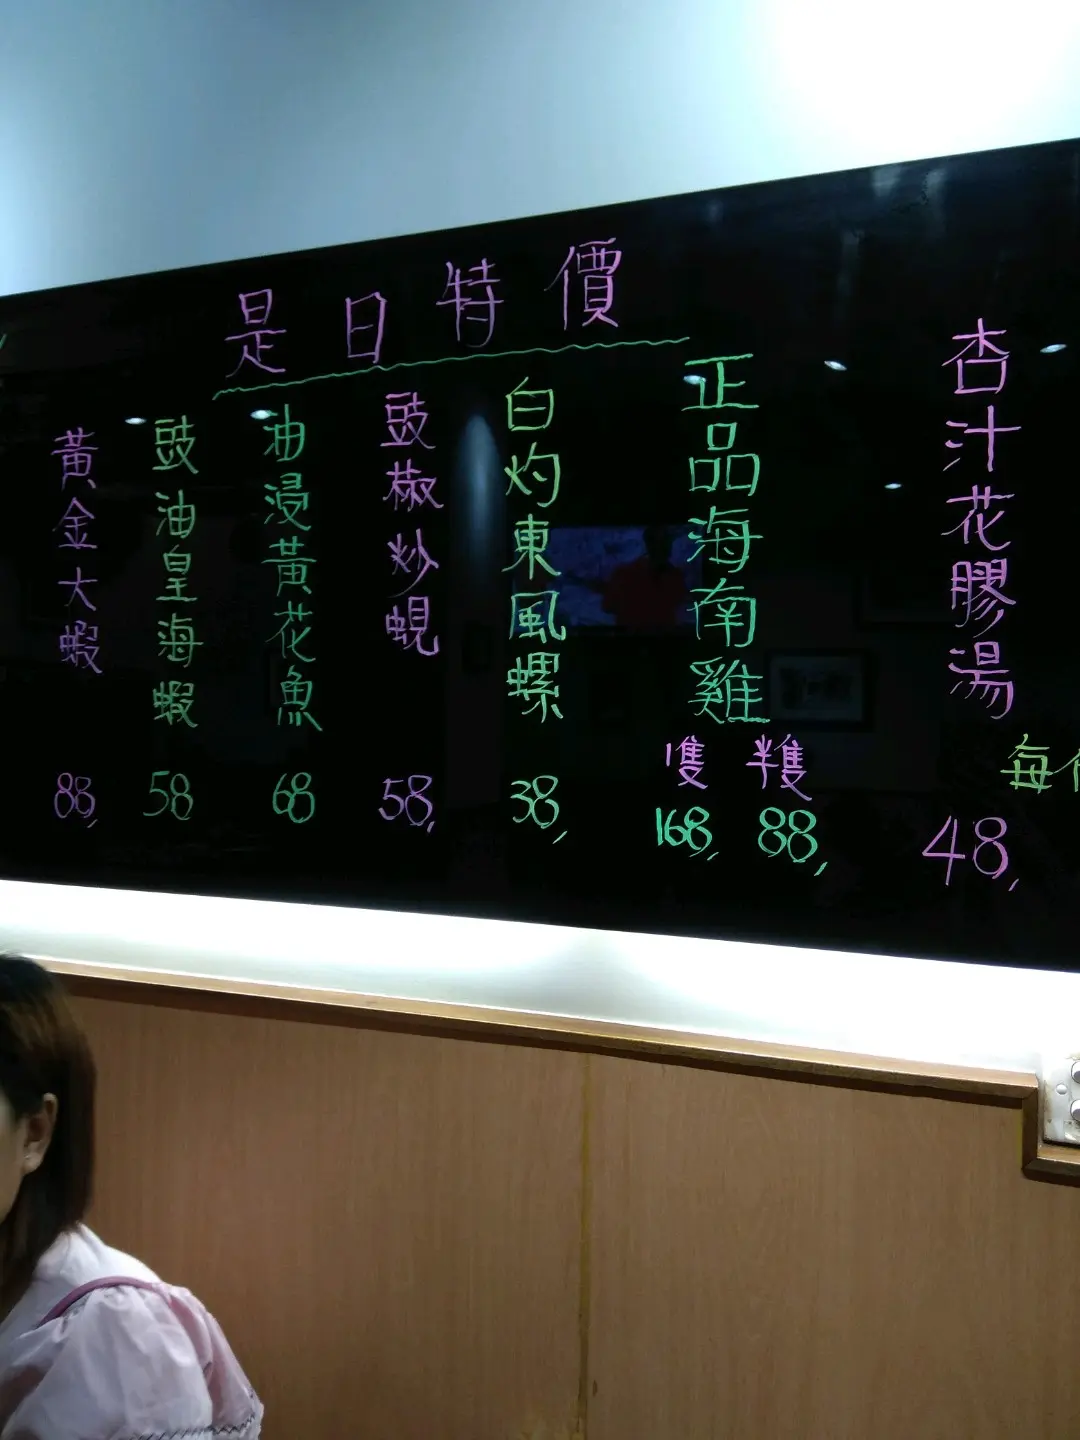 是日特價
杏汁花膠湯
每
48,
正品海南雞
隻 半隻
168, 88,
白灼東風螺
38,
豉椒炒蜆
58,
油浸黃花魚
68
豉油皇海蝦
58
黃金大蝦
88,